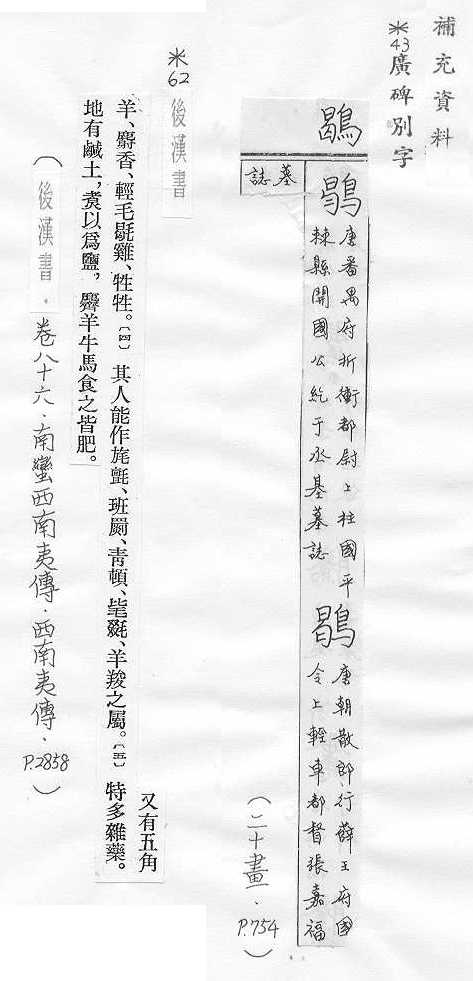 補充資料
※43廣碑別字
鶡
墓誌
鶡 唐番禺府折衝都尉上柱國平
棘縣開國公紇于丞基墓誌
鶡 唐朝散郎行薛王府國
令上輕車都督張嘉福
(二十畫.P.754)
※62後漢書
又有五角
羊、麝香、輕毛毼雞、牲牲。〔四〕其人能作旄氈、班罽、青頓、毞毲、羊羧之屬。〔五〕特多雜藥。
地有鹹土,煑以爲鹽,麡羊牛馬食之皆肥。
(後漢書.卷八十六.南蠻西南夷傳.西南夷傳.P.2858)